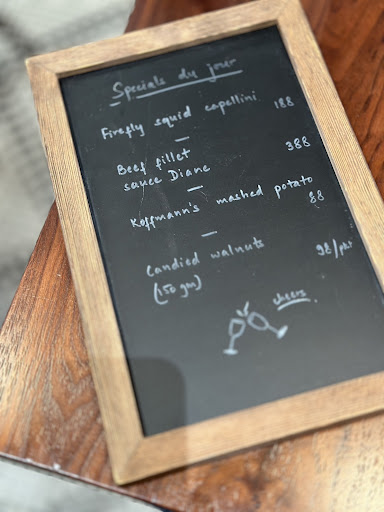 Specials du jour
Firefly squid capellini 188
Beef fillet 388
sauce Diane
Koffmann's mashed potato
88
Candied walnuts 98/pkt
(150 gm)
cheers